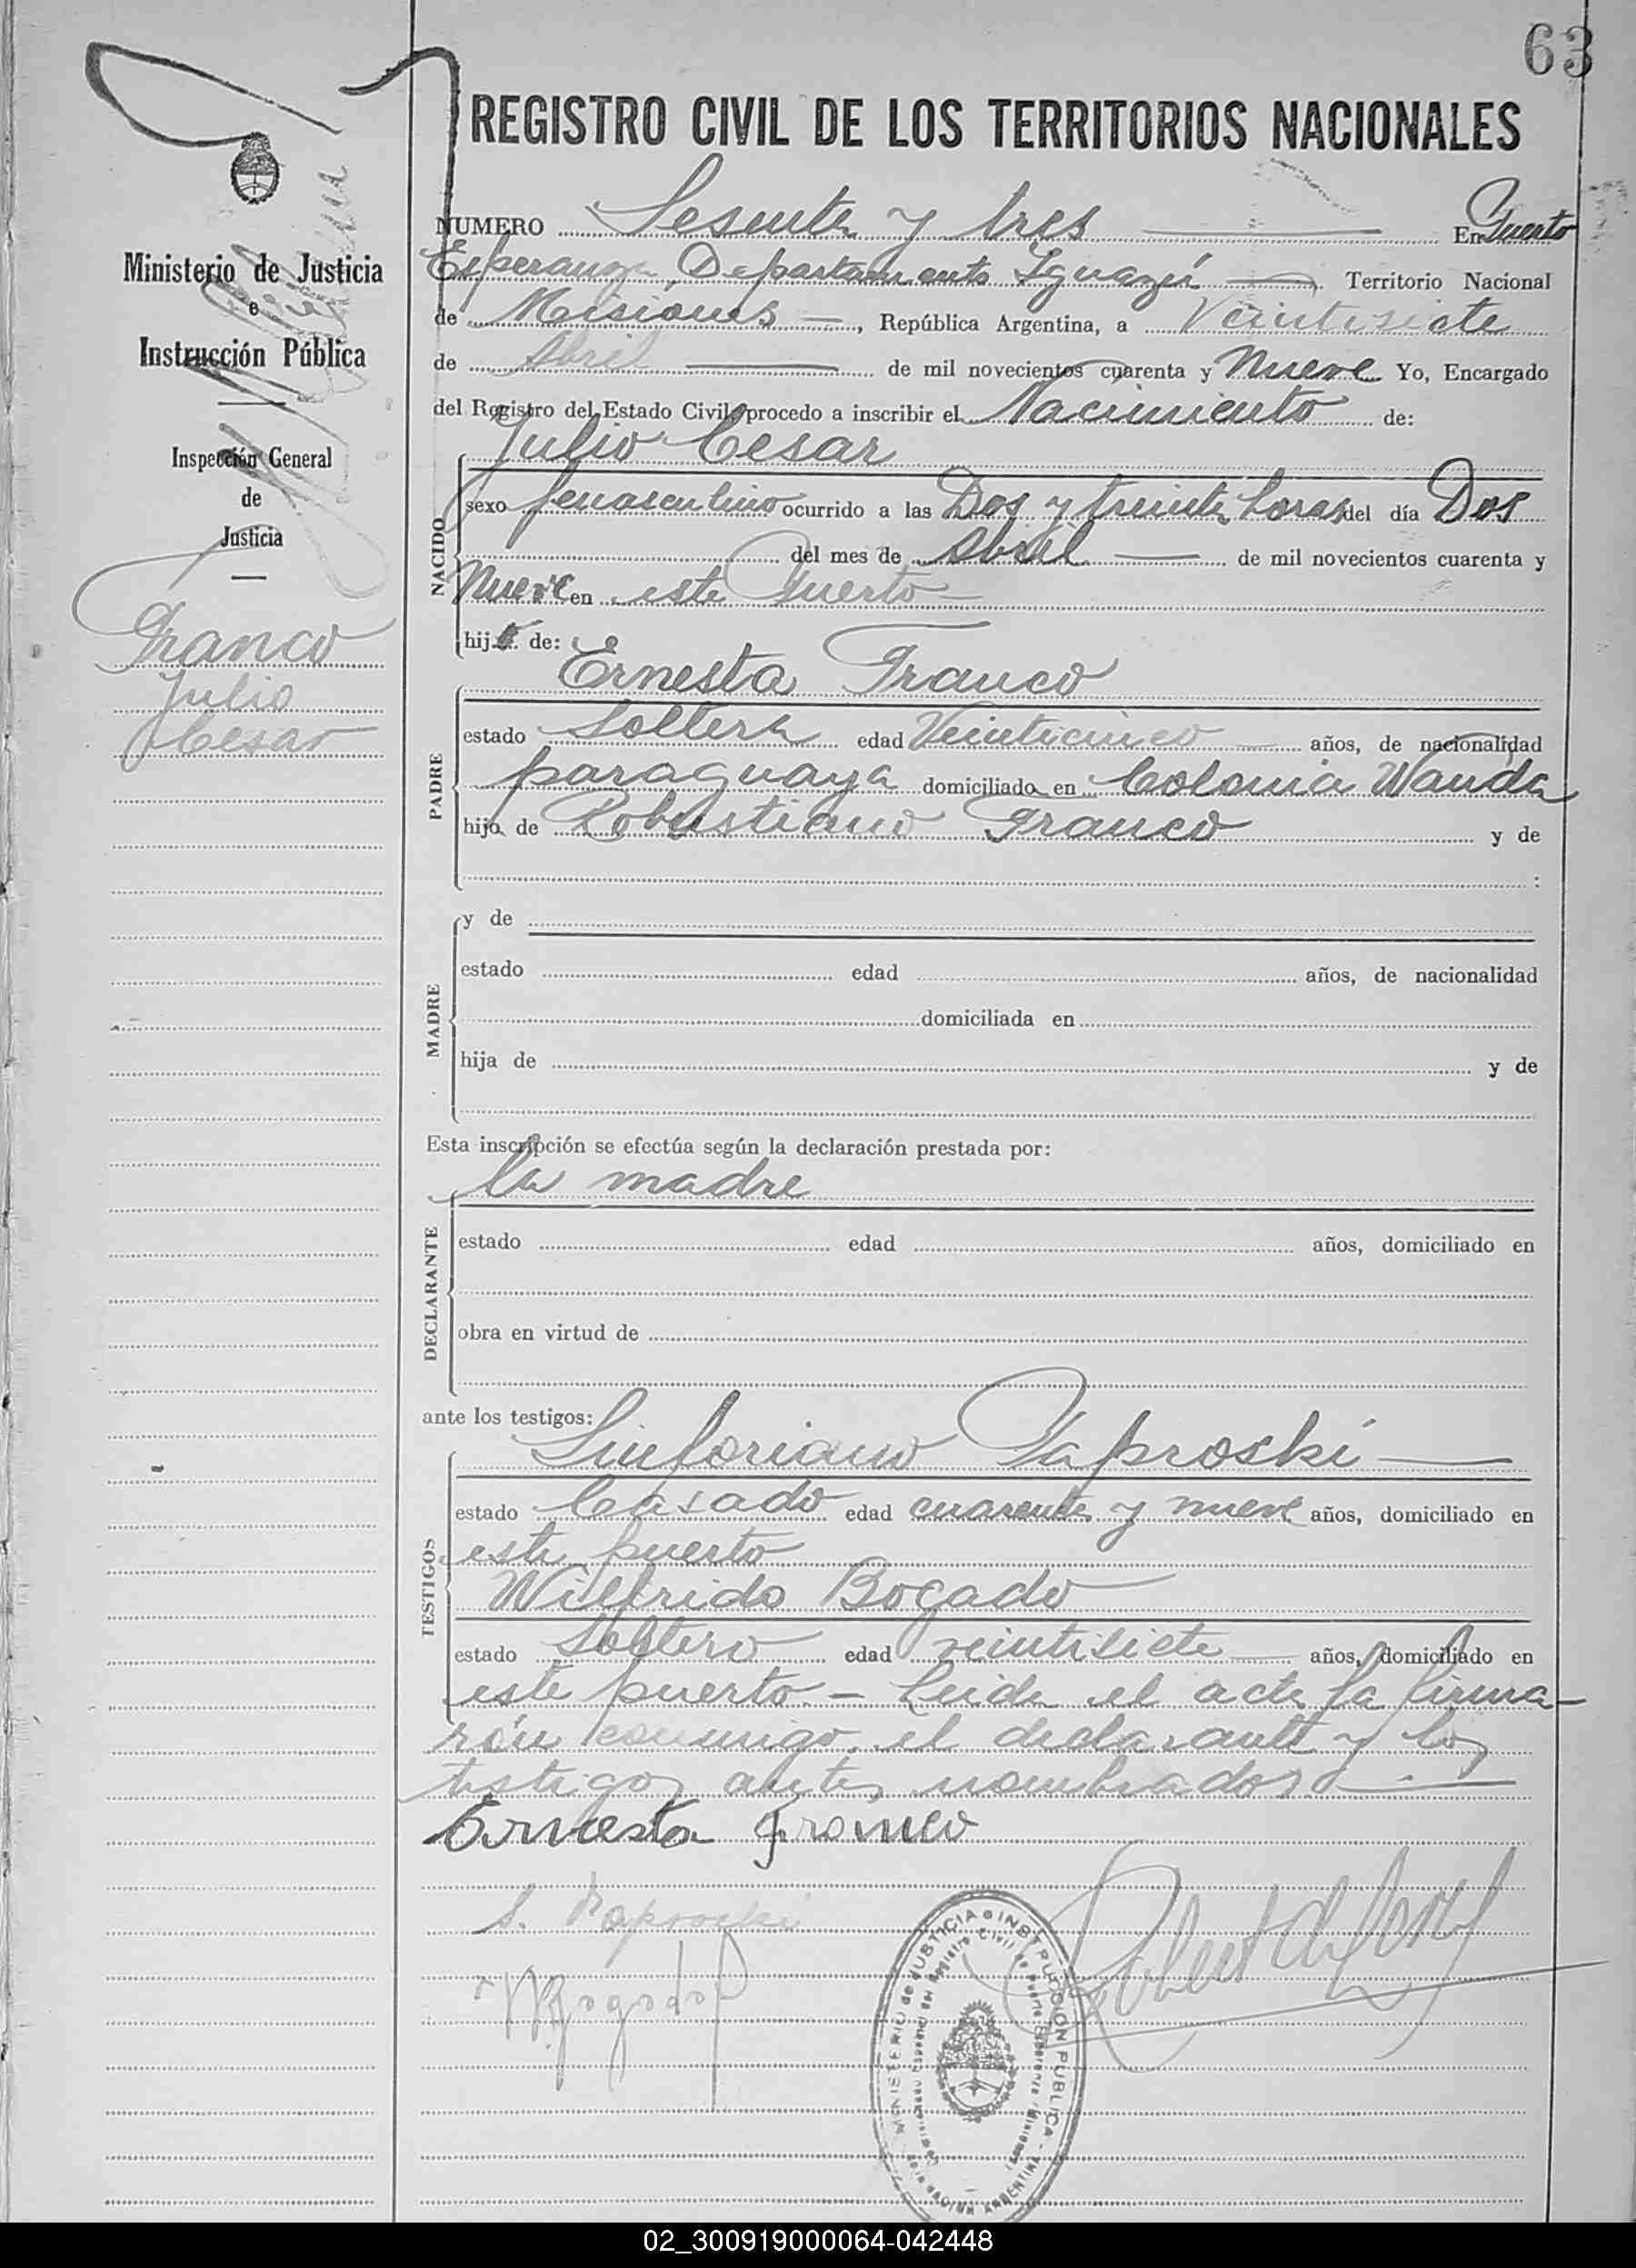 63
REGISTRO CIVIL DE LOS TERRITORIOS NACIONALES
Ministerio de Justicia
e
Instrucción Pública
Inspección General
de
Justicia
Franco
Julio
Cesar
NUMERO Sesenta y tres En Puerto
Esperanza Departamento Iguazú Territorio Nacional
de Misiones, República Argentina, a Veintisiete
de Abril de mil novecientos cuarenta y Nueve Yo, Encargado
del Registro del Estado Civil, procedo a inscribir el Nacimiento de:
Julio Cesar
NACIDO
sexo masculino ocurrido a las Dos y treinta horas del día Dos
del mes de Abril de mil novecientos cuarenta y
Nueve en este Puerto
hijo de:
Ernesta Franco
PADRE
estado Soltera edad Veinticinco años, de nacionalidad
paraguaya domiciliado en Colonia Wanda
hijo de Robustiano Franco y de
:
y de
MADRE
estado edad años, de nacionalidad
domiciliada en
hija de y de
Esta inscripción se efectúa según la declaración prestada por:
la madre
DECLARANTE
estado edad años, domiciliado en
obra en virtud de
ante los testigos:
Sinforiano Paproski
TESTIGOS
estado Casado edad cuarenta y nueve años, domiciliado en
este puerto
Wilfrido Bogado
estado Soltero edad veintisiete años, domiciliado en
este puerto. - Leida el acta la firma-
rón conmigo, el declarante y los
testigos antes nombrados.
Ernesta Franco
S. Paprocki
W Bogado
MINISTERIO de JUSTICIA e INSTRUCCION PUBLICA
02_300919000064-042448